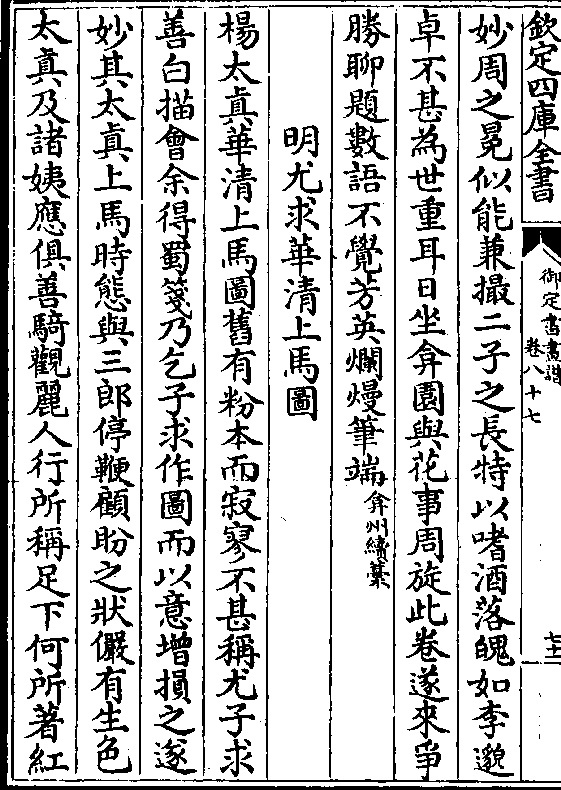 欽定四庫全書
御定書畫譜
卷八十七
七十二
妙周之冕似能兼撮二子之長特以嗜酒落魄如李邈
卓不甚為世重耳日坐弇園與花事周旋此卷遂來爭
勝聊題數語不覺芳英爛熳筆端弇州續藁
明尤求華清上馬圖
楊太真華清上馬圖舊有粉本而寂寥不甚稱尤子求
善白描會余得蜀箋乃乞子求作圖而以意增損之遂
妙其太真上馬時態與三郎停鞭顧盼之狀儼有生色
太真及諸姨應俱善騎觀麗人行所稱足下何所著紅